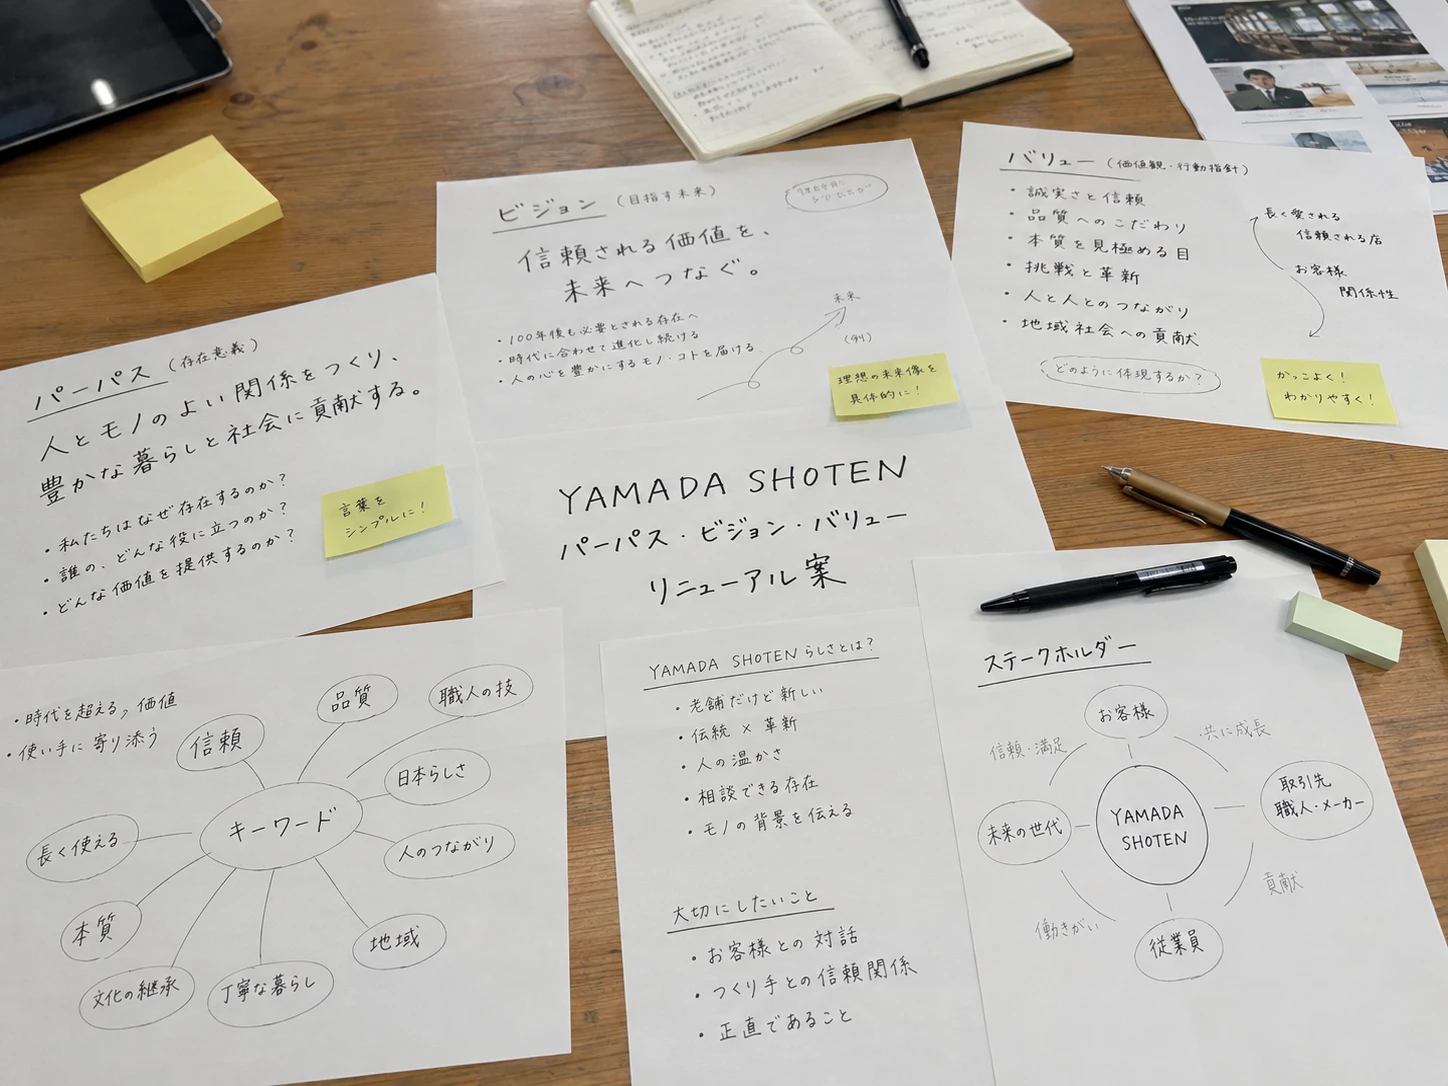 ビジョン（目指す未来）
信頼される価値を、
未来へつなぐ。
・100年後も必要とされる存在へ
・時代に合わせて進化し続ける
・人の心を豊かにするモノ・コトを届ける
未来
(例)
理想の未来像を
具体的に！
バリュー（価値観・行動指針）
・誠実さと信頼
・品質へのこだわり
・本質を見極める目
・挑戦と革新
・人と人とのつながり
・地域社会への貢献
長く愛される
信頼される店
お客様
関係性
どのように体現するか？
かっこよく！
わかりやすく！
パーパス（存在意義）
人とモノのよい関係をつくり、
豊かな暮らしと社会に貢献する。
・私たちはなぜ存在するのか？
・誰の、どんな役に立つのか？
・どんな価値を提供するのか？
言葉を
シンプルに！
YAMADA SHOTEN
パーパス・ビジョン・バリュー
リニューアル案
・時代を超える、価値
・使い手に寄り添う
キーワード
信頼
品質
職人の技
日本らしさ
人のつながり
地域
丁寧な暮らし
文化の継承
本質
長く使える
YAMADA SHOTENらしさとは？
・老舗だけど新しい
・伝統×革新
・人の温かさ
・相談できる存在
・モノの背景を伝える
大切にしたいこと
・お客様との対話
・つくり手との信頼関係
・正直であること
ステークホルダー
お客様
信頼・満足
・共に成長
取引先
職人・メーカー
未来の世代
YAMADA
SHOTEN
貢献
働きがい
従業員